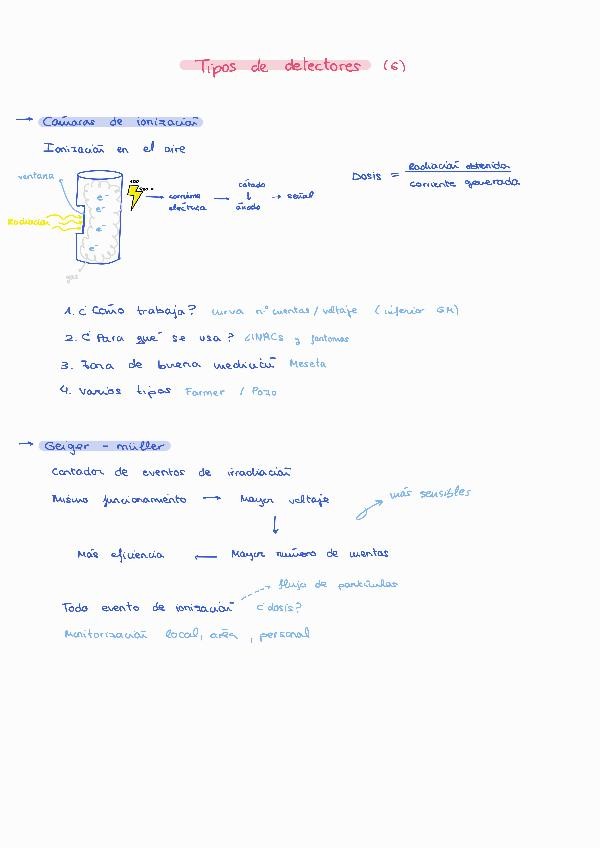 Tipos de detectores (6)
→ Cámaras de ionización
Ionización en el aire
ventana
Radiación
e⁻
e⁻
e⁻
e⁻
gas
→ corriente eléctrica → cátodo ↓ ánodo → señal
Dosis = Radiación obtenida / corriente generada
1. ¿Cómo trabaja? curva nº cuentas / voltaje (inferior GM)
2. ¿Para qué se usa? LINACs y fantomas
3. Zona de buena medición Meseta
4. Varios tipos Farmer / Pozo
→ Geiger - müller
Contador de eventos de irradiación
Mismo funcionamiento → Mayor voltaje
más sensibles
↓
Más eficiencia ← Mayor número de cuentas
flujo de partículas
Todo evento de ionización ¿dosis?
Monitorización local, área, personal